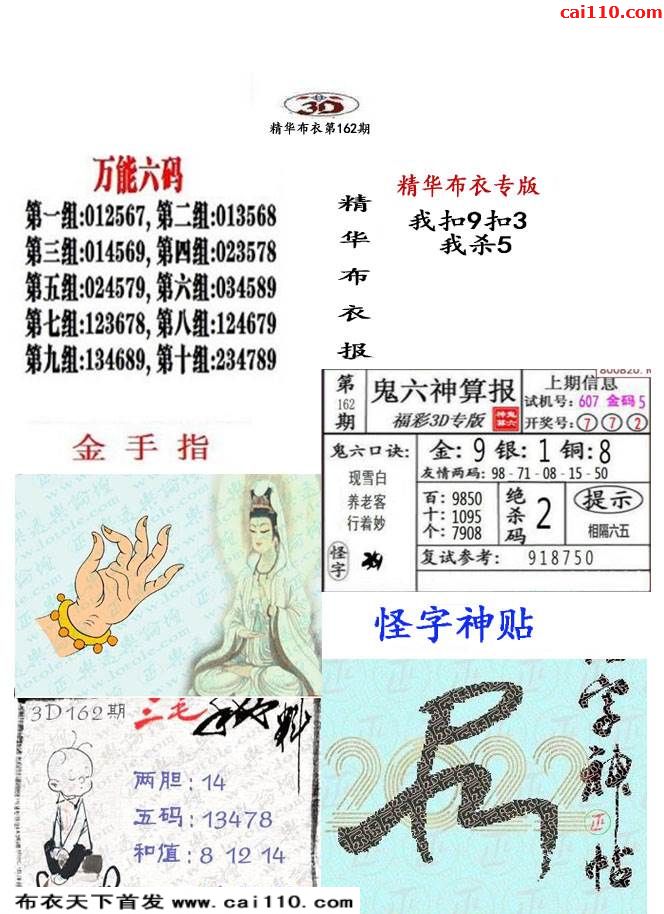 cai110.com
3D
精华布衣第162期
万能六码
第一组:012567,第二组:013568
第三组:014569,第四组:023578
第五组:024579,第六组:034589
第七组:123678,第八组:124679
第九组:134689,第十组:234789
精华布衣报
精华布衣专版
我扣9扣3
我杀5
第162期
鬼六神算报
福彩3D专版
上期信息
试机号:607 金码5
开奖号:772
鬼六口诀:
现雪白
养老客
行着妙
怪字
金:9银:1铜:8
友情两码:98-71-08-15-50
百:9850
十:1095
个:7908
绝杀码 2
提示
相隔六五
复试参考: 918750
金手指
怪字神贴
3D162期
三毛
两胆:14
五码:13478
和值:8 12 14
2022
字神帖
正
布衣天下首发 www.cai110.com